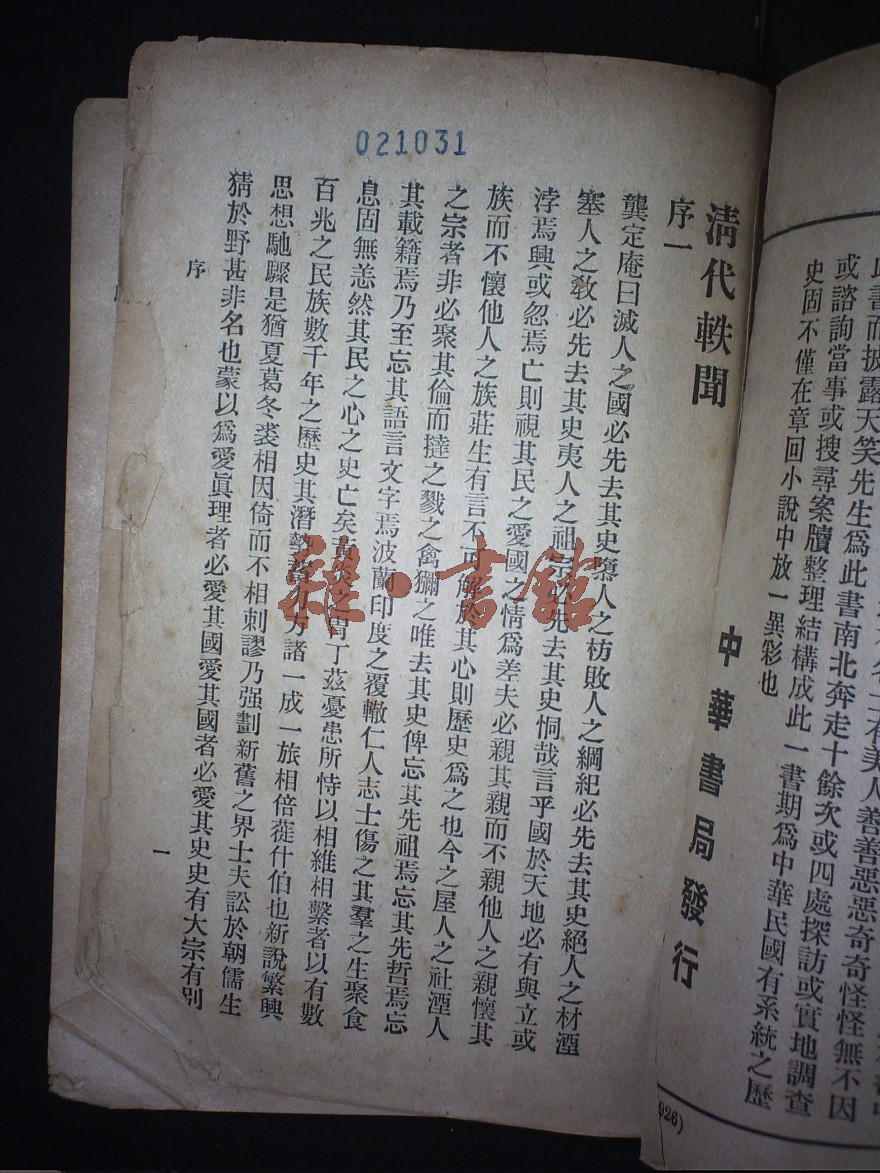 021031
清代軼聞
序一
龔定庵曰滅人之國必先去其史隳人之枋敗人之綱紀必先去其史絕人之材湮
塞人之敎必先去其史夷人之祖宗必先去其史恫哉言乎國於天地必有與立或
浡焉興或忽焉亡則視其民之愛國之情爲差夫必親其親而不親他人之親懷其
族而不懷他人之族莊生有言不可解於其心則歷史爲之也今之屋人之社湮人
之宗者非必聚其倫而撻之戮之禽獮之唯去其史俾忘其先祖焉忘其先哲焉忘
其載籍焉乃至忘其語言文字焉波蘭印度之覆轍仁人志士傷之其羣之生聚食
息固無恙然其民之心之史亡矣黃炎之冑丁茲憂患所恃以相維相繫者以有數
百兆之民族數千年之歷史其潛勢力方諸一成一旅相倍蓰什伯也新說繁興
思想馳驟是猶夏葛冬裘相因倚而不相刺謬乃强劃新舊之界士夫訟於朝儒生
猜於野甚非名也蒙以爲愛眞理者必愛其國愛其國者必愛其史史有大宗有別
序
一
雜·書館
此書而披露天笑先生爲此書南北奔走十餘次或四處探訪或實地調查
或諮詢當事或搜尋案牘整理結構成此一書期爲中華民國有系統之歷
史固不僅在章回小說中放一異彩也
有美人善善惡惡奇奇怪怪無不因
中華書局發行
926)